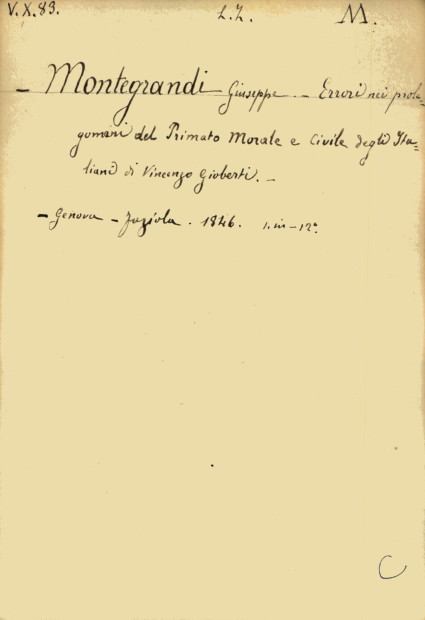 V.X.83. L.L. M.
- Montegrandi Giuseppe. - Errori nei prole-
gomeni del Primato Morale e Civile degli Ita-
liani di Vincenzo Gioberti. -
- Genova - Faziola. 1846. 1. in - 12°.
C